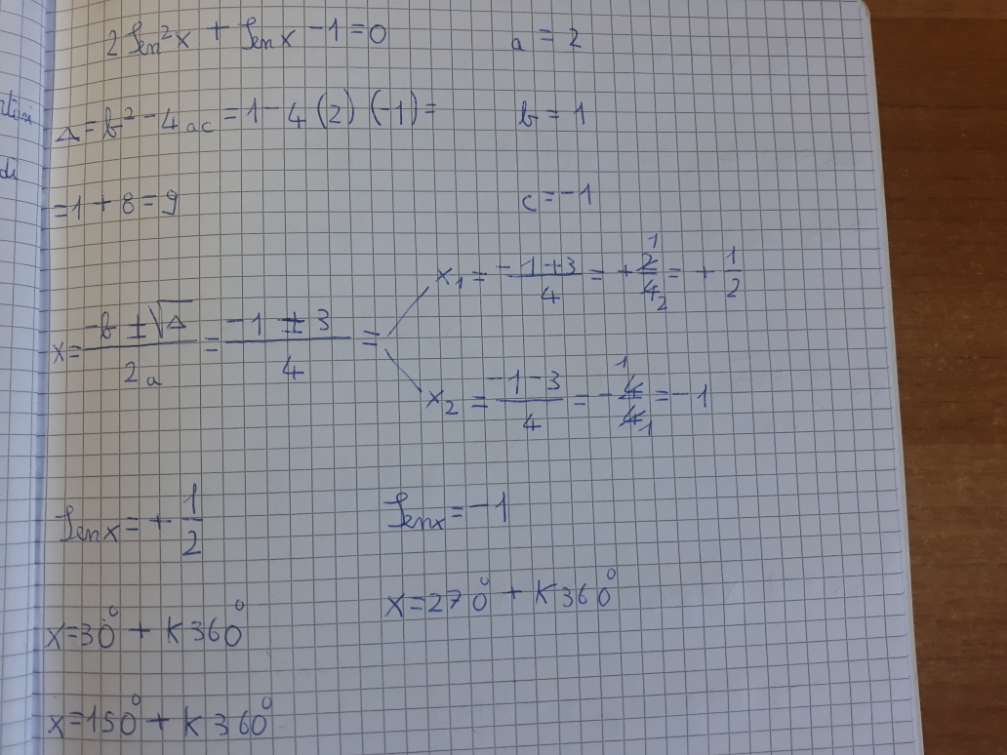 2 sen²x + sen x - 1 = 0
a = 2
Δ = b² - 4ac = 1 - 4 (2) (-1) =
b = 1
= 1 + 8 = 9
c = -1
x = (-b ± √Δ)/(2a) = (-1 ± 3)/4 =
x₁ = (-1 + 3)/4 = + 2/4 = + 1/2
x₂ = (-1 - 3)/4 = - 4/4 = - 1
sen x = + 1/2
sen x = - 1
x = 30° + K 360°
x = 270° + K 360°
x = 150° + K 360°
di